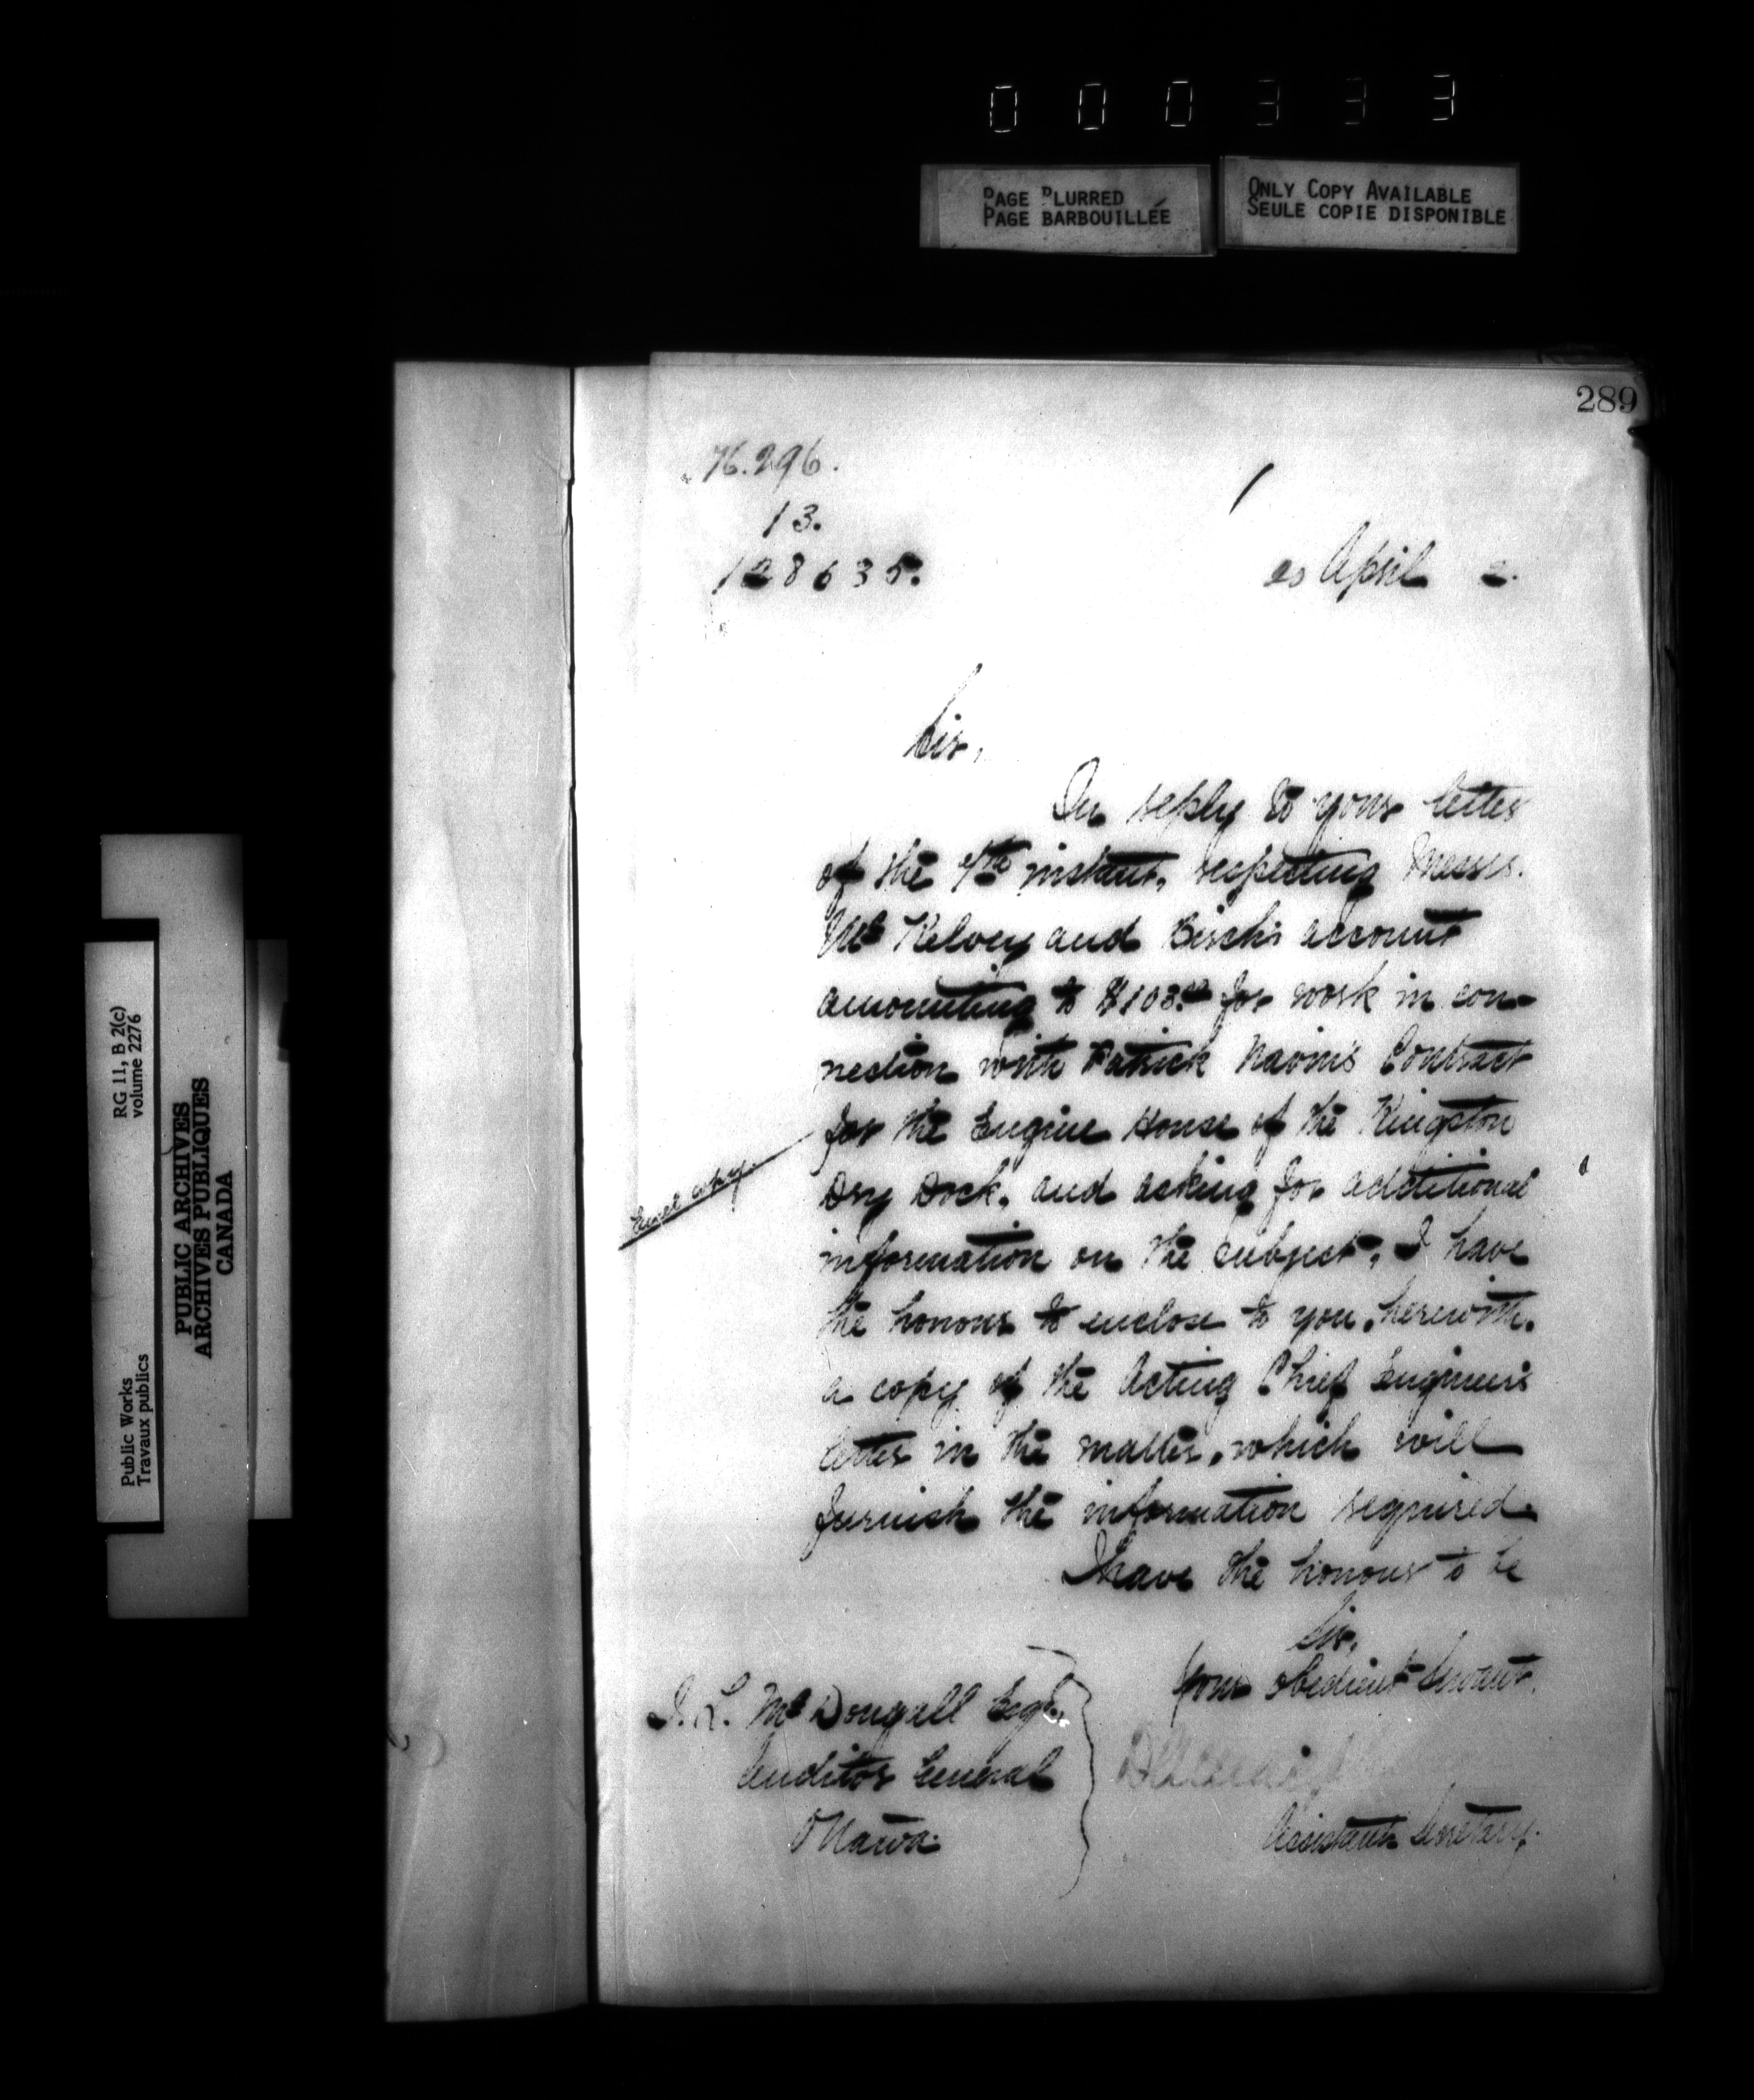 000333
PAGE BLURRED
PAGE BARBOUILLÉE
ONLY COPY AVAILABLE
SEULE COPIE DISPONIBLE
289
76.296.
13.
128635.
20 April 2.
Sir,
In reply to your letter
of the 7th instant, respecting Messrs.
McKelvey and Birch's account
amounting to $103. for work in con-
nection with Patrick Navin's Contract
for the Engine House of the Kingston
Dry Dock, and asking for additional
information on the subject, I have
the honour to enclose to you, herewith,
a copy of the Acting Chief Engineer's
letter in the matter, which will
furnish the information required.
I have the honour to be
Sir,
Your obedient Servant.
Encl. copy.
J. L. McDougall Esqre.
Auditor General
Ottawa.
Assistant Secretary.
RG 11, B 2(c)
volume 2276
Public Works
Travaux publics
PUBLIC ARCHIVES
ARCHIVES PUBLIQUES
CANADA